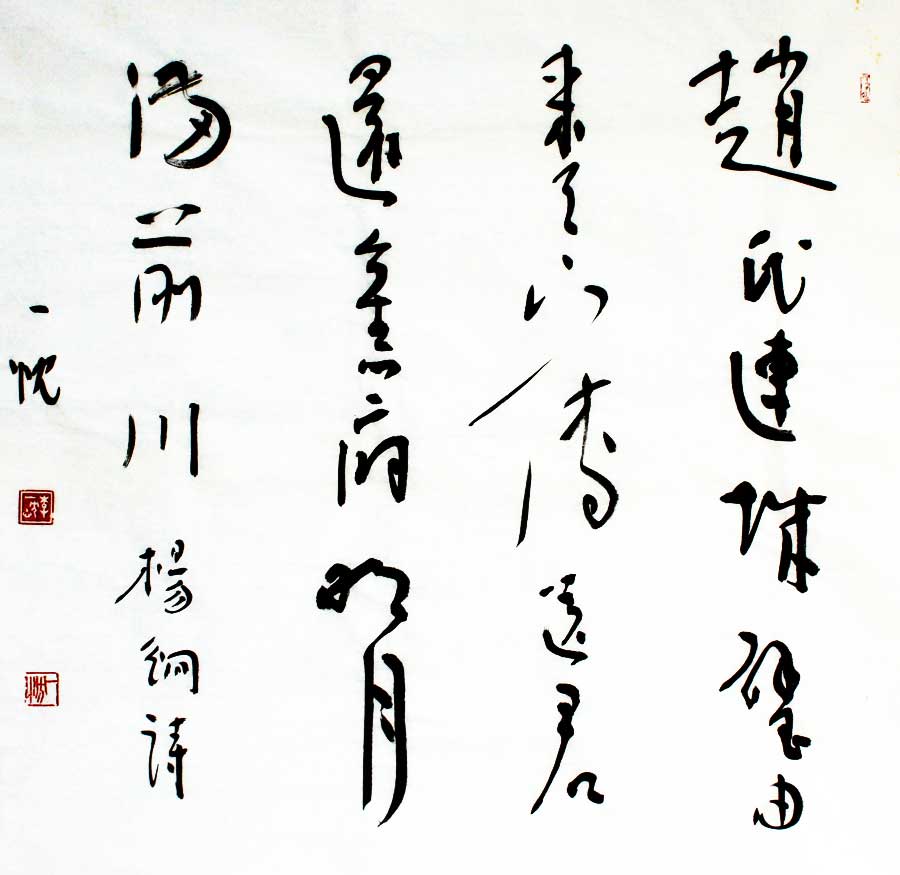 趙氏連城璧由
来天下傳送君
還舊府明月
滿前川 楊炯詩
一忱